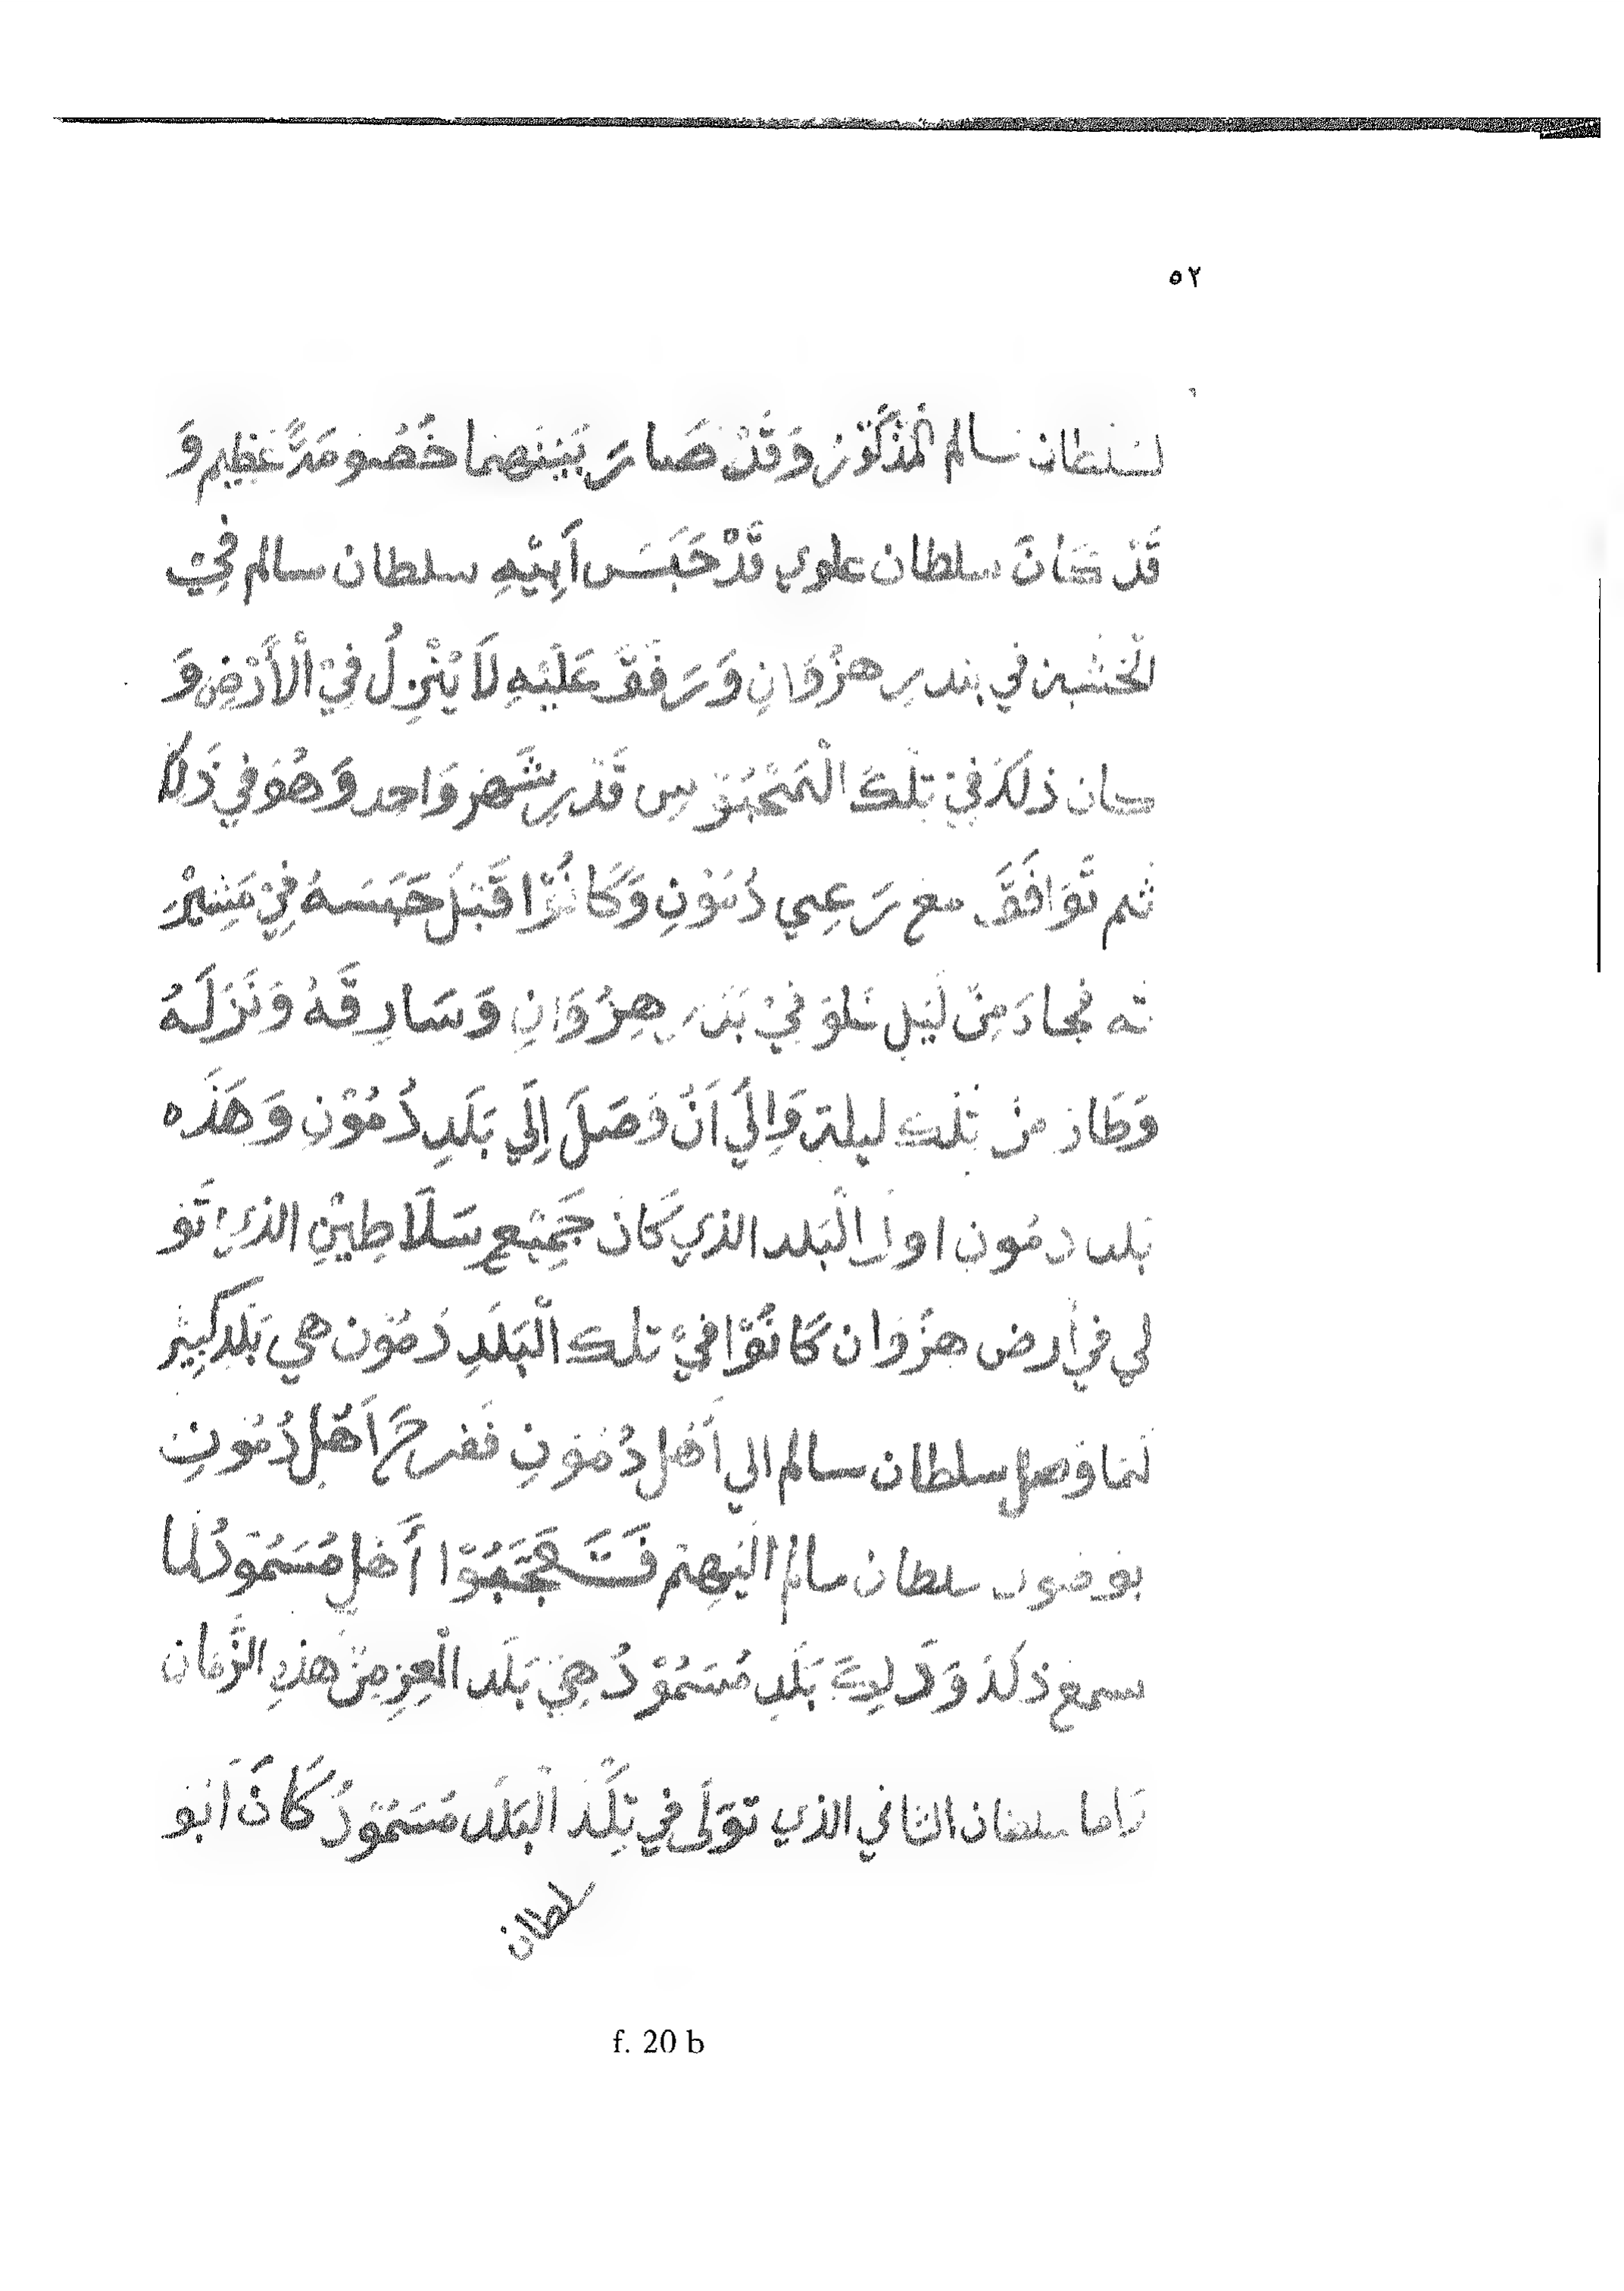 ٥٢
لسُلطان سالم الْمَذْكُوْرُ وَقَدْ صَارَ بَيْنَهِمَا خَصُومَةً عَظِيم وَ
قَدْ كَانَ سلطان علوي قَدْ حَبَسَ أَبِيْهِ سلطان سالم فِيْ
الْخَشْبِ في بندرِ هِزْوَانِ وَرَفَقَ عَلَيْهِ لَا يَنْزِلُ فِيْ الْأَرْضِ وَ
كان ذلكَ فِيْ تِلْكَ الْمَحْبُوْسِ قَدْرِ شَهْرٍ وَاحِد وَهُوَ فِي ذَلكَ
ثم تَوَافَقَ مَعَ رَعِي دُمُوْنِ وَكَانُوْا قَبْلَ حَبَسَهُ فِيْ مَشِيْرَ
ته فجاءَ مِنْ لَيْلِ في بَنْدَرِ هِزْوَانِ وَسَارِقَهُ وَنَزَلَهُ
مِنْ تِلْكَ ليلة وَإِلَيْ أَنْ وَصَلَ إِلَي بَلَدِ دُمُوْنِ وَهَذَه
بَلَد دمُون اول الْبَلد الذي كَانَ جَمِيْع سَلَاطِيْنِ الذي تَوَ
لي في أرض هِزْوَان كَانُوْا فِيْ تلك الْبَلَدِ دُمُوْن هي بَلَدِ كَبِيْر
لَمَا وَصَل سلطان سالم الي أَهْل دُمُوْنِ فَفَرحَ أَهْل دُمُونِ
بوصول سلطان سالم الَيْهِمْ فَتَعَجَّبُوْا أَهْل مُسَمُوْدُ لَمَا
سمع ذلكَ وَذَلِكَ بَلَدِ مُسَمُوْدُ هِيَ بَلَد الْعِزِ مِنْ هذهِ الزَّمَان
وَاما سلطان الثاني الذي تَوَلَى في تِلْكَ الْبَلَد مُسَمُوْدُ كَانَ أَبُو
سلطان
f. 20 b